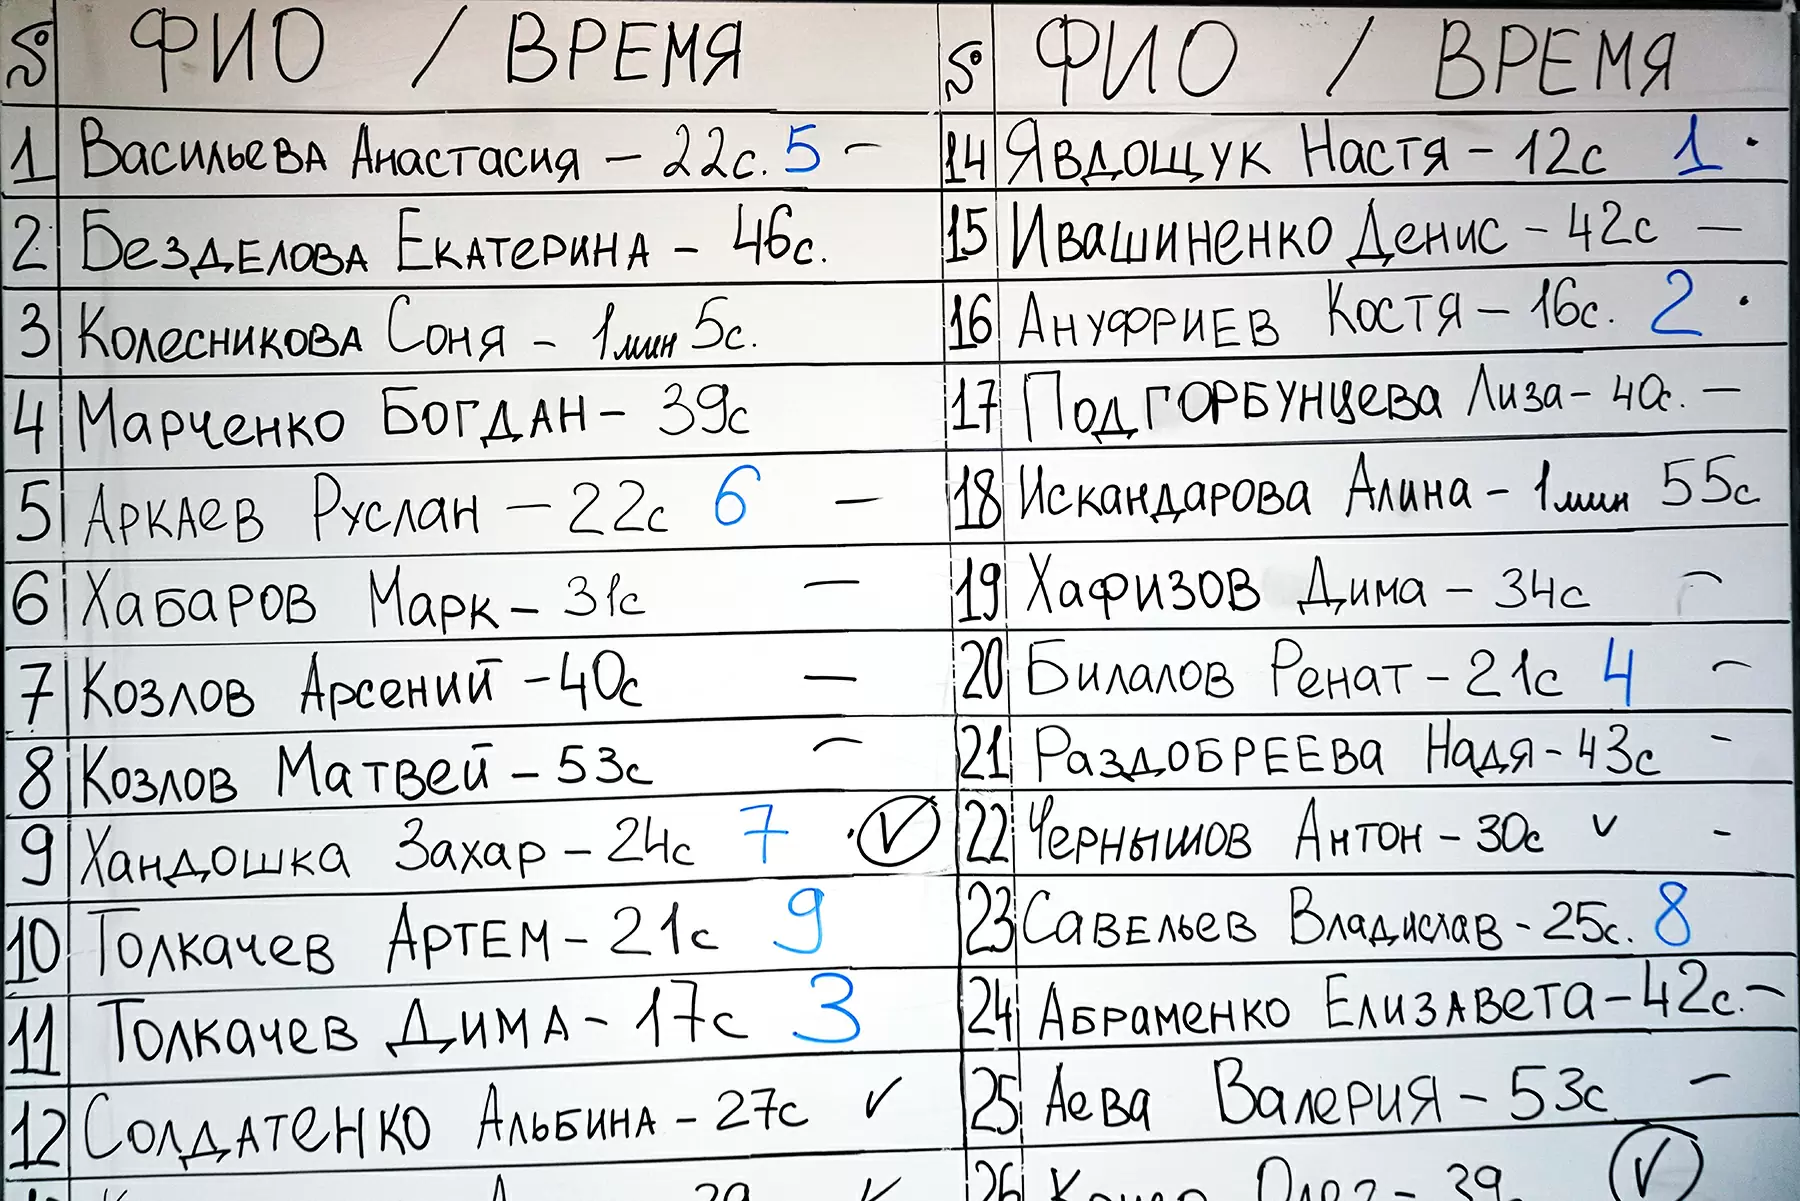 № ФИО / ВРЕМЯ
1 Васильева Анастасия – 22с. 5 –
2 Безделова Екатерина – 46с.
3 Колесникова Соня – 1мин 5с.
4 Марченко Богдан – 39с
5 Аркаев Руслан – 22с 6 –
6 Хабаров Марк – 31с –
7 Козлов Арсений – 40с –
8 Козлов Матвей – 53с –
9 Хандошка Захар – 24с 7 · ✓
10 Толкачев Артем – 21с 9
11 Толкачев Дима – 17с 3
12 Солдатенко Альбина – 27с ✓
№ ФИО / ВРЕМЯ
14 Явдощук Настя – 12с 1 ·
15 Ивашиненко Денис – 42с –
16 Ануфриев Костя – 16с. 2 ·
17 Подгорбунцева Лиза – 40с. –
18 Искандарова Алина – 1мин 55с
19 Хафизов Дима – 34с –
20 Билалов Ренат – 21с 4 –
21 Раздобреева Надя – 43с –
22 Чернышов Антон – 30с ✓ –
23 Савельев Владислав – 25с. 8
24 Абраменко Елизавета – 42с. –
25 Аева Валерия – 53с –
26 – 39с ✓